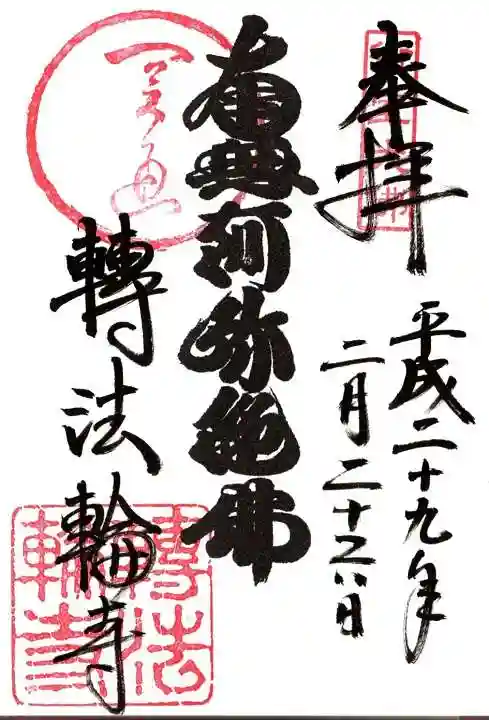 奉拝
平成二十九年
二月二十六日
南無阿弥陀佛
轉法輪寺
轉法輪寺